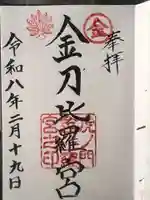 奉拝
金
金刀比羅宮
令和八年二月十九日